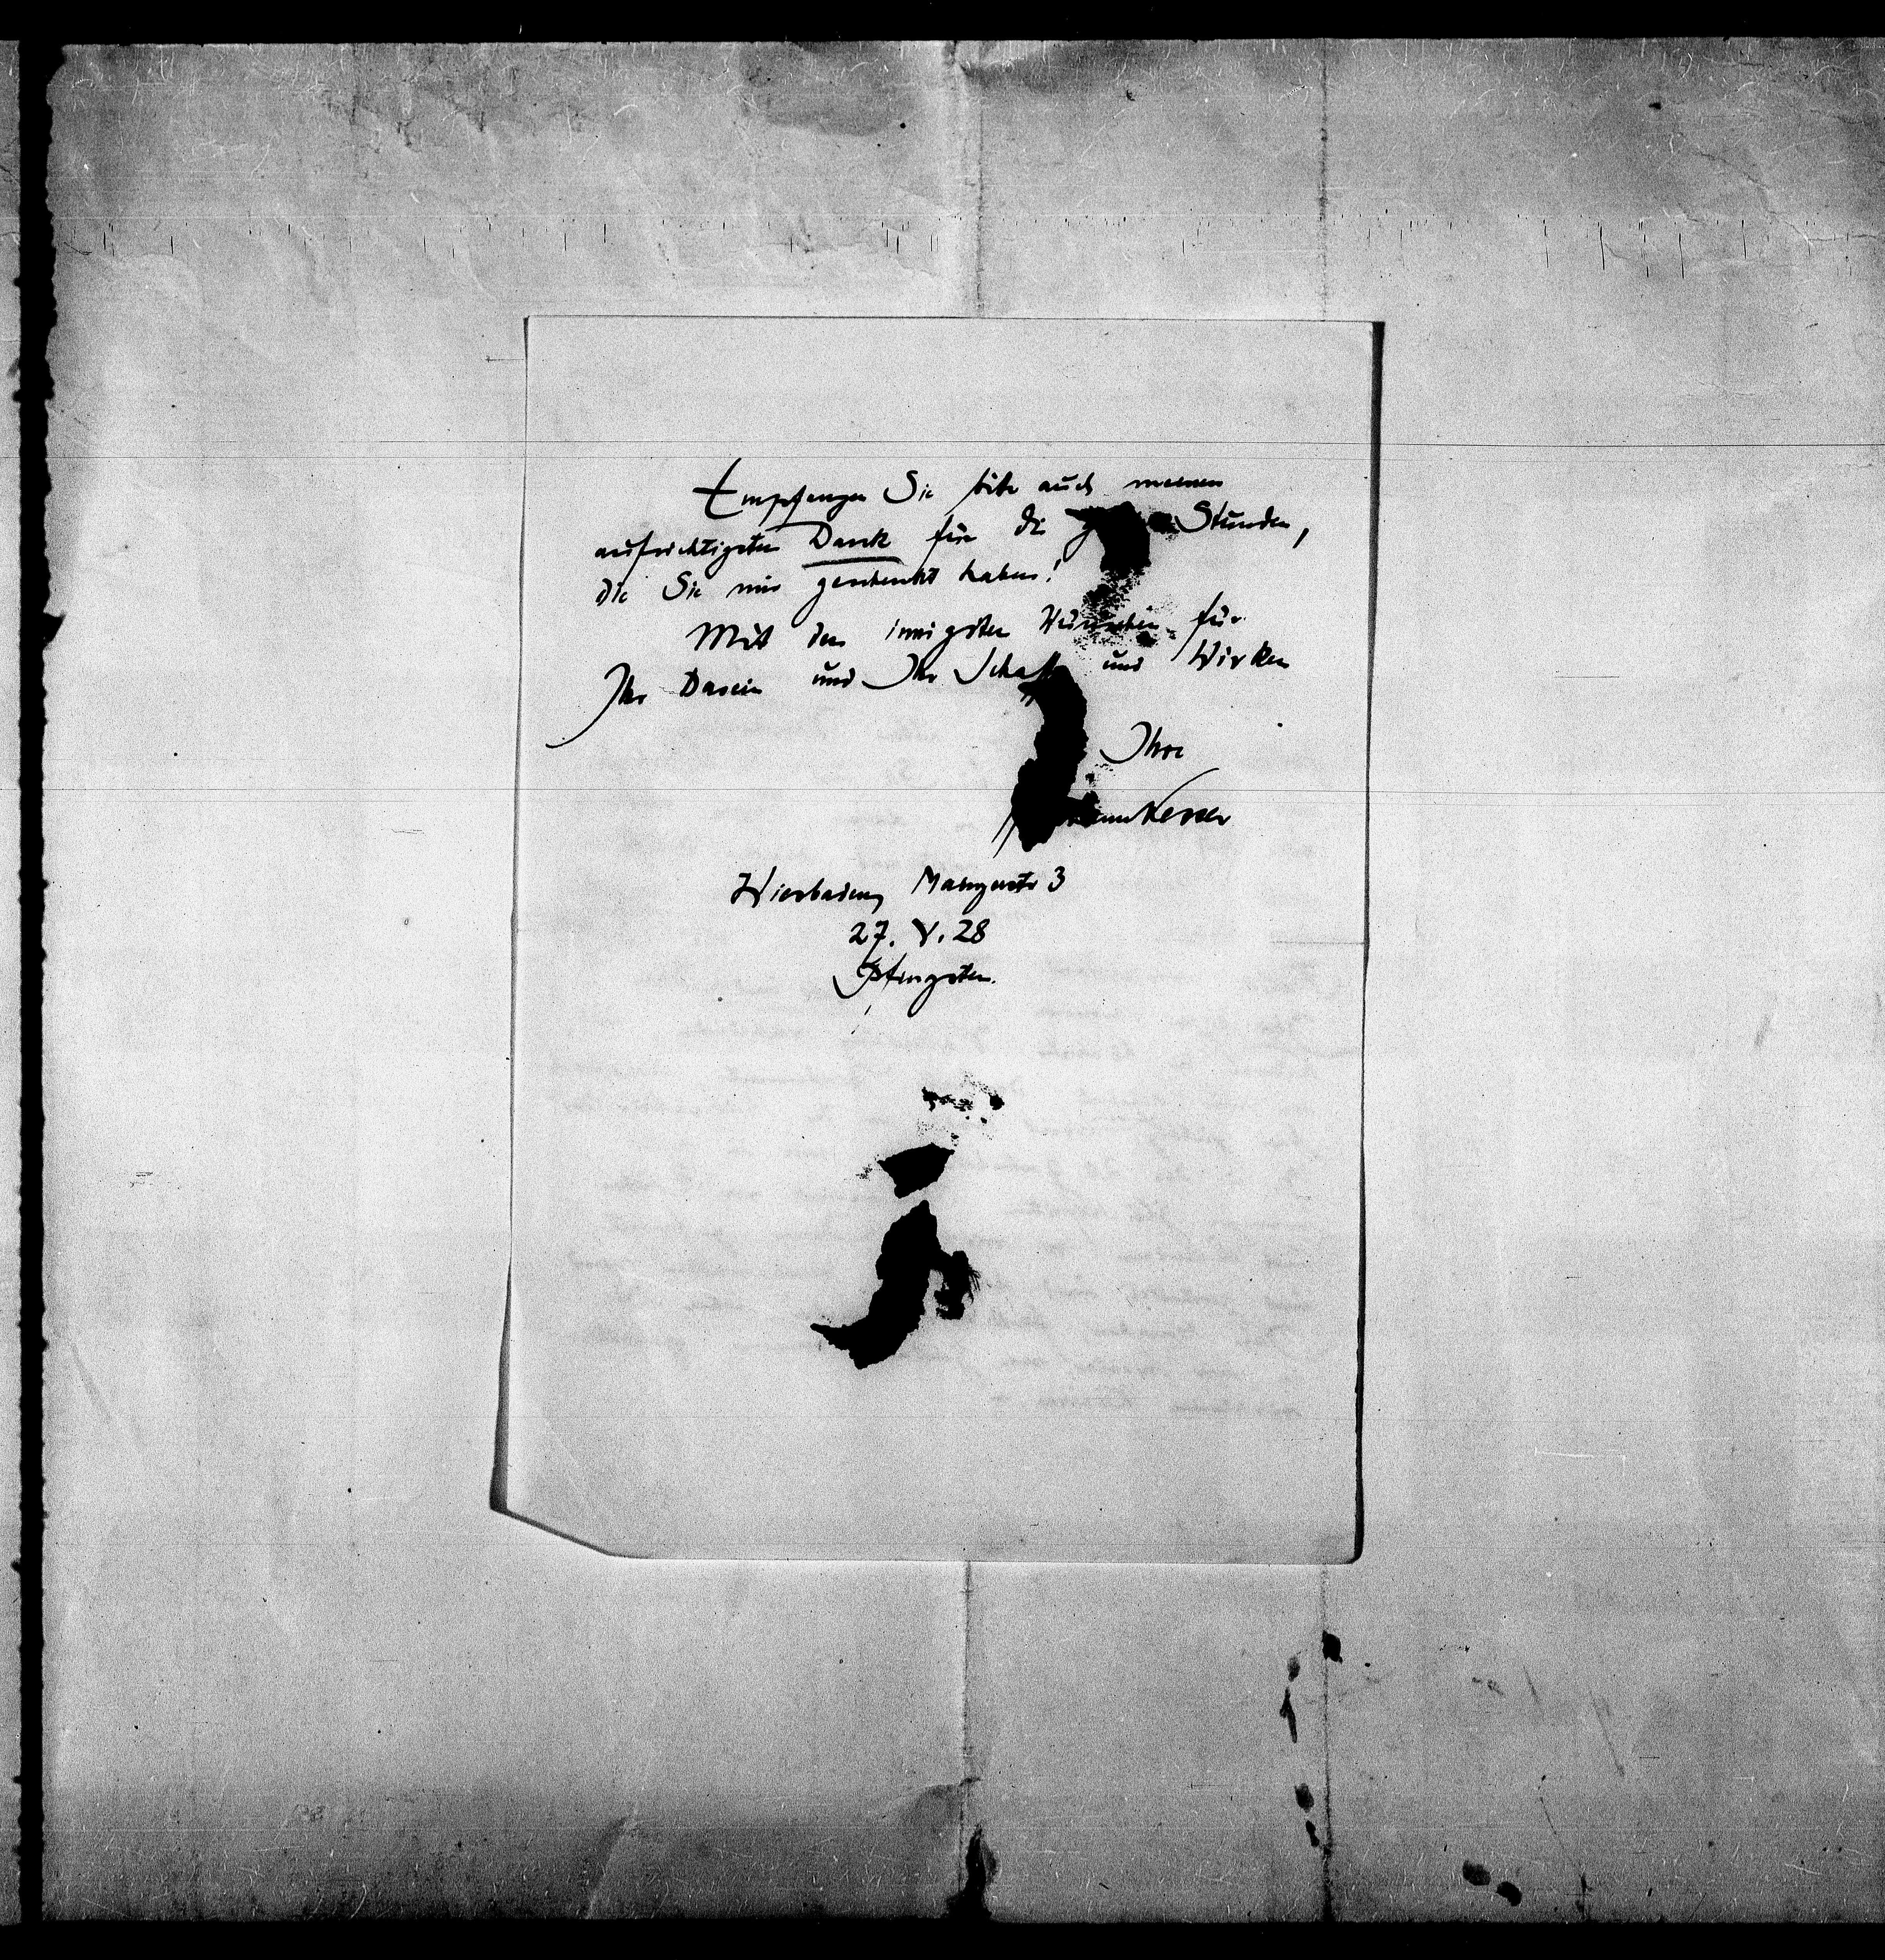 Empfangen Sie bitte auch meinen
aufrichtigsten Dank für die Stunden,
die Sie mir geschenkt haben!
Mit den innigsten Wünschen für
Ihr Dasein und Ihr und Wirken
Ihre
Wiesbaden,
27. V. 28
Pfingsten.